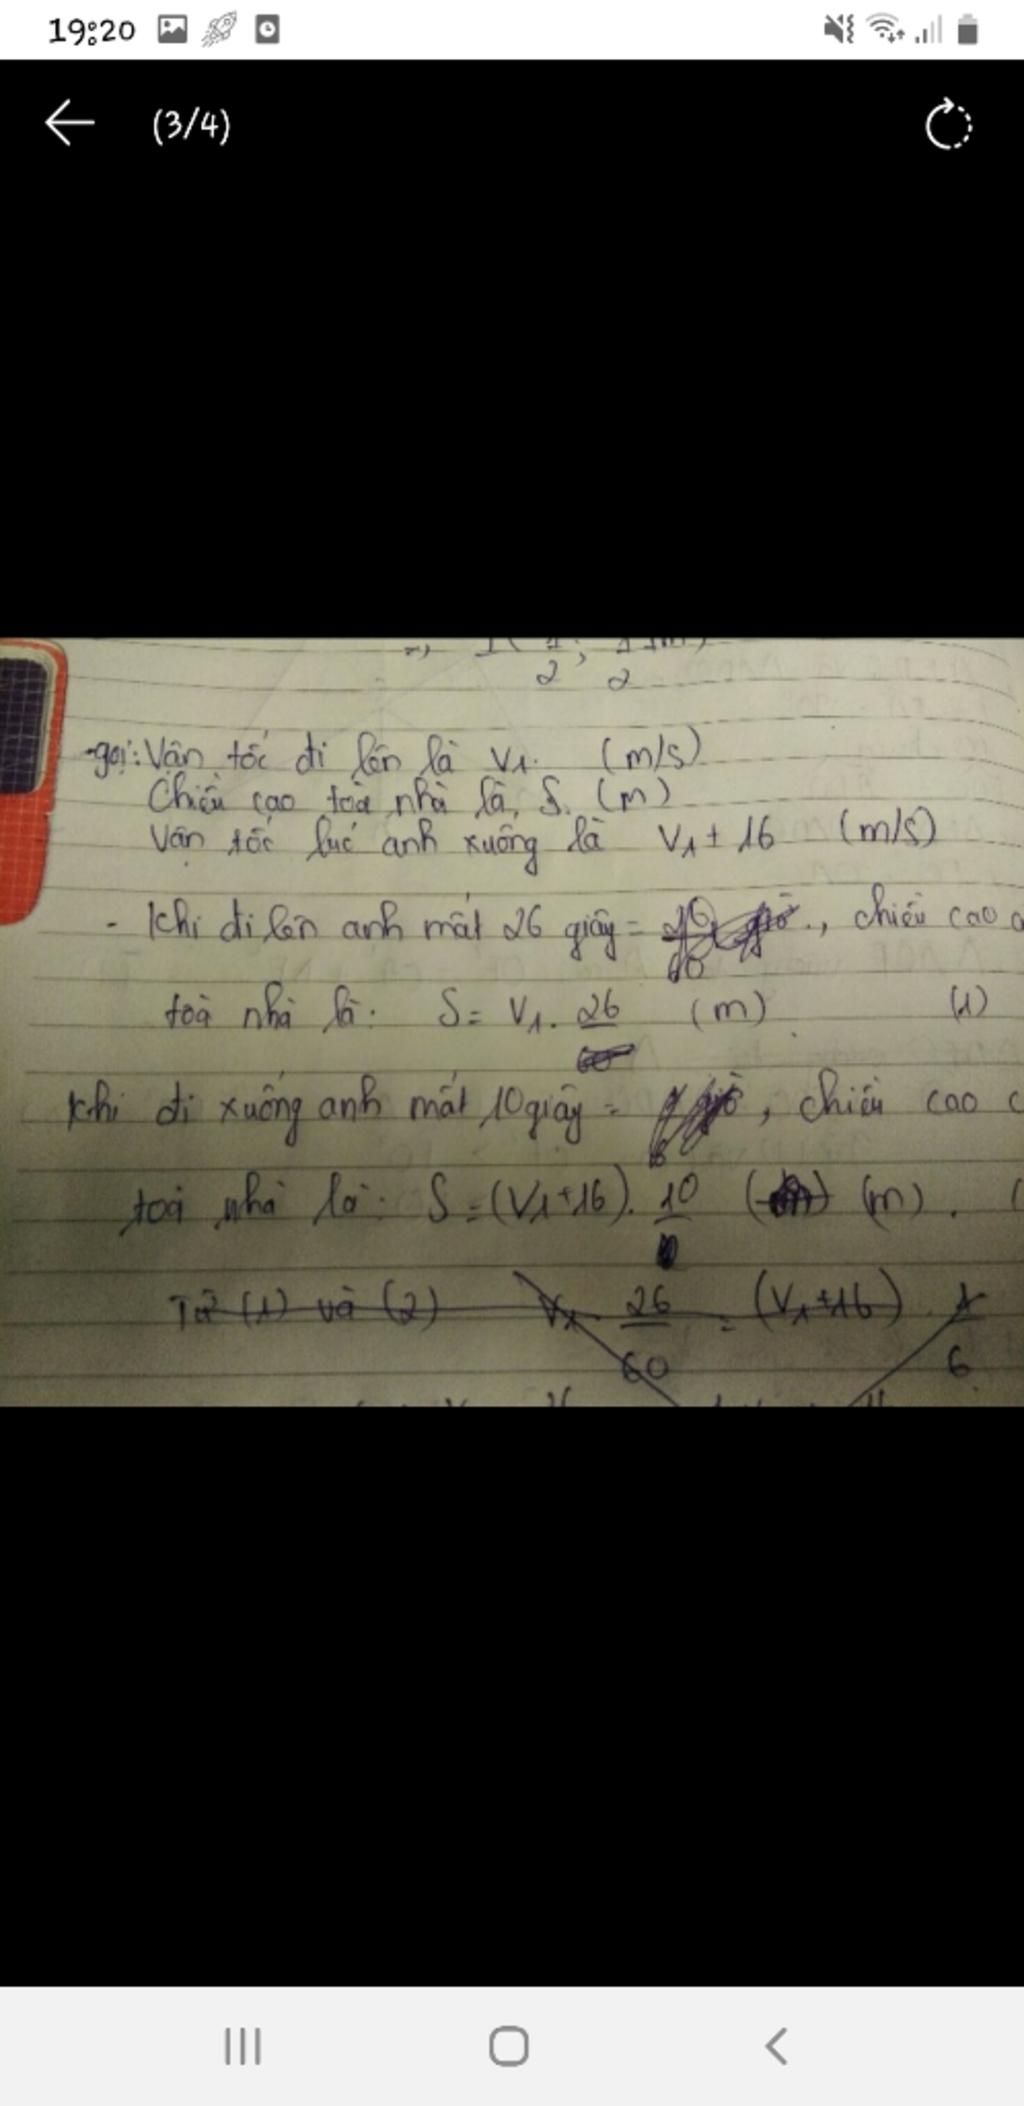 19:20
(3/4)
2 2
-gọi: Vận tốc đi lên là V1. (m/s)
Chiều cao toà nhà là, S. (m)
Vận tốc lúc anh xuống là V1 + 16 (m/s)
- Khi đi lên anh mất 26 giây = , chiều cao
toà nhà là: S = V1. 26 (m) (1)
60
Khi đi xuống anh mất 10 giây = , chiều cao c
toà nhà là: S = (V1+16). 10 (m).
Từ (1) và (2) V1 26 = (V1+16) 1
60 6